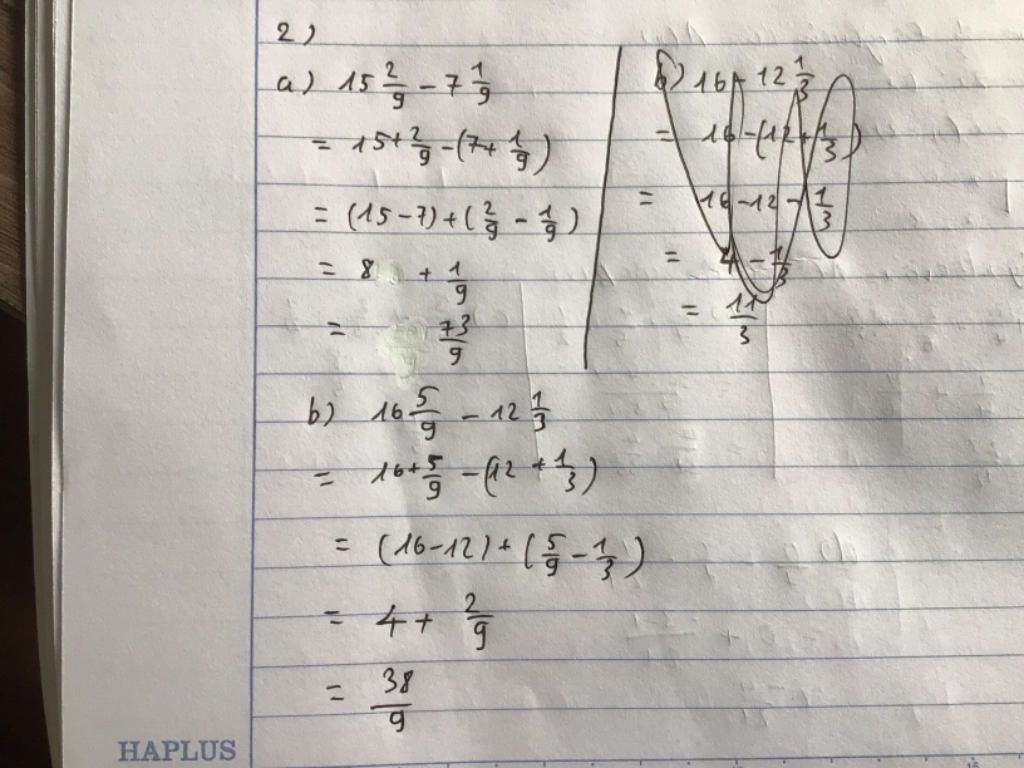 2)
a) 15 2/9 - 7 1/9
= 15 + 2/9 - (7 + 1/9)
= (15 - 7) + (2/9 - 1/9)
= 8 + 1/9
= 73/9
b) 16 - 12 1/3
= 16 - (12 + 1/3)
= 16 - 12 - 1/3
= 4 - 1/3
= 11/3
b) 16 5/9 - 12 1/3
= 16 + 5/9 - (12 + 1/3)
= (16 - 12) + (5/9 - 1/3)
= 4 + 2/9
= 38/9
HAPLUS